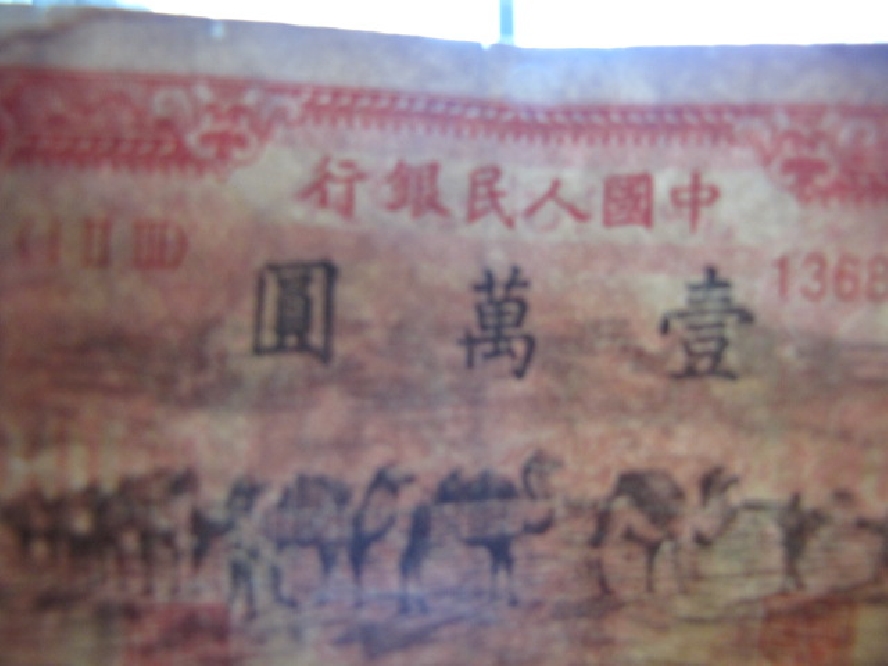 中國人民銀行
(I II III)
1368
壹萬圓